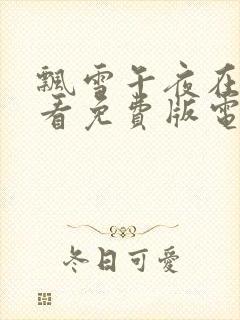 飄雪午夜在
看免費版電
冬日可愛